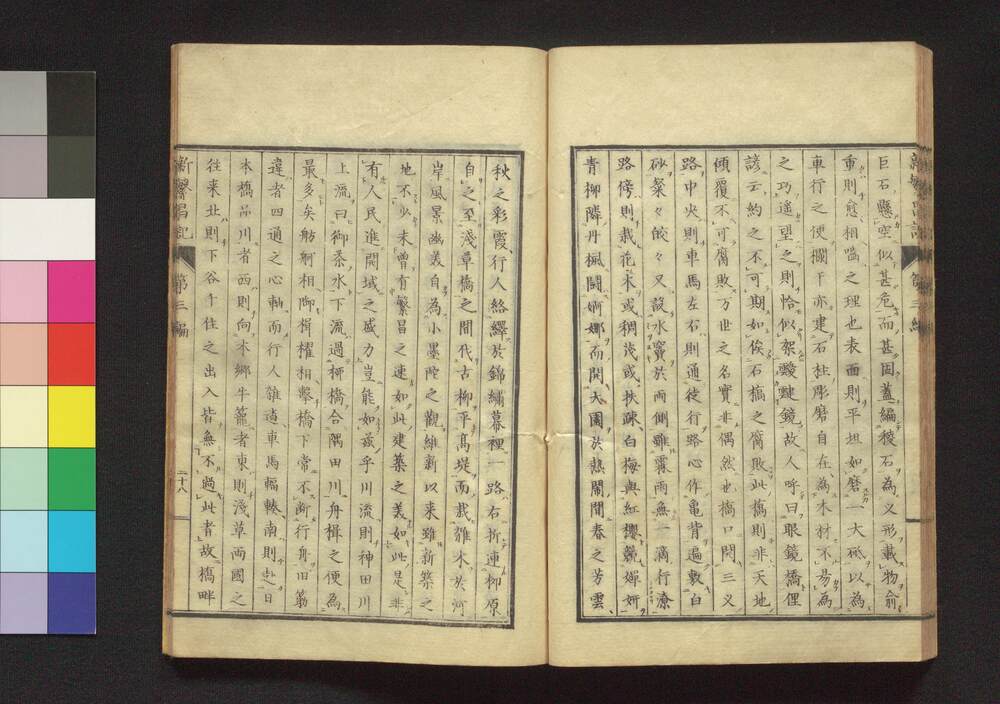 巨石懸空似甚危而甚固蓋編稜石為义形載物俞
重則愈相嚙之理也表面則平坦如磨一大砥以為
車行之便欄干亦建石柱彫磨自在為木材不易為
之功遙望之則恰似架靉靆鏡故人呼曰眼鏡橋俚
諺云約之不可期如俟石橋之腐敗此橋則非天地
傾覆不可腐敗万世之名實非偶然也橋口開三义
路中央則車馬左右則通徒行路心作亀背遍敷白
砂粲々皎々又設水竇於兩側雖霖雨無一滴行潦
路傍則栽花木或稠茂或扶疎白梅與紅櫻競嬋妍
青柳隣丹楓鬪婀娜而開天園於熱鬧閙春之芳雲
秋之彩霞行人絡繹於錦繡幕裡一路右折連柳原
自之至淺草橋之間伐古柳平高堤而栽雜木於河
岸風景幽美自為小墨陀之觀維新以来雖新築之
地不少未曾有繁昌之速如此建築之美如此是非
有人民進開域之盛力豈能如茲乎川流則神田川
上流曰御茶水下流過柳橋合隅田川舟楫之便為
最多矣舫舸相啣楫櫂相擊橋下常不断行舟旧葯
違者四通之心軸而行人雜遝車馬輻輳南則赴日
本橋品川者西則向本郷牛籠者東則淺草両國之
往来北則下谷千住之出入皆無不過此者故橋畔
新繁昌記
第三編
二十八